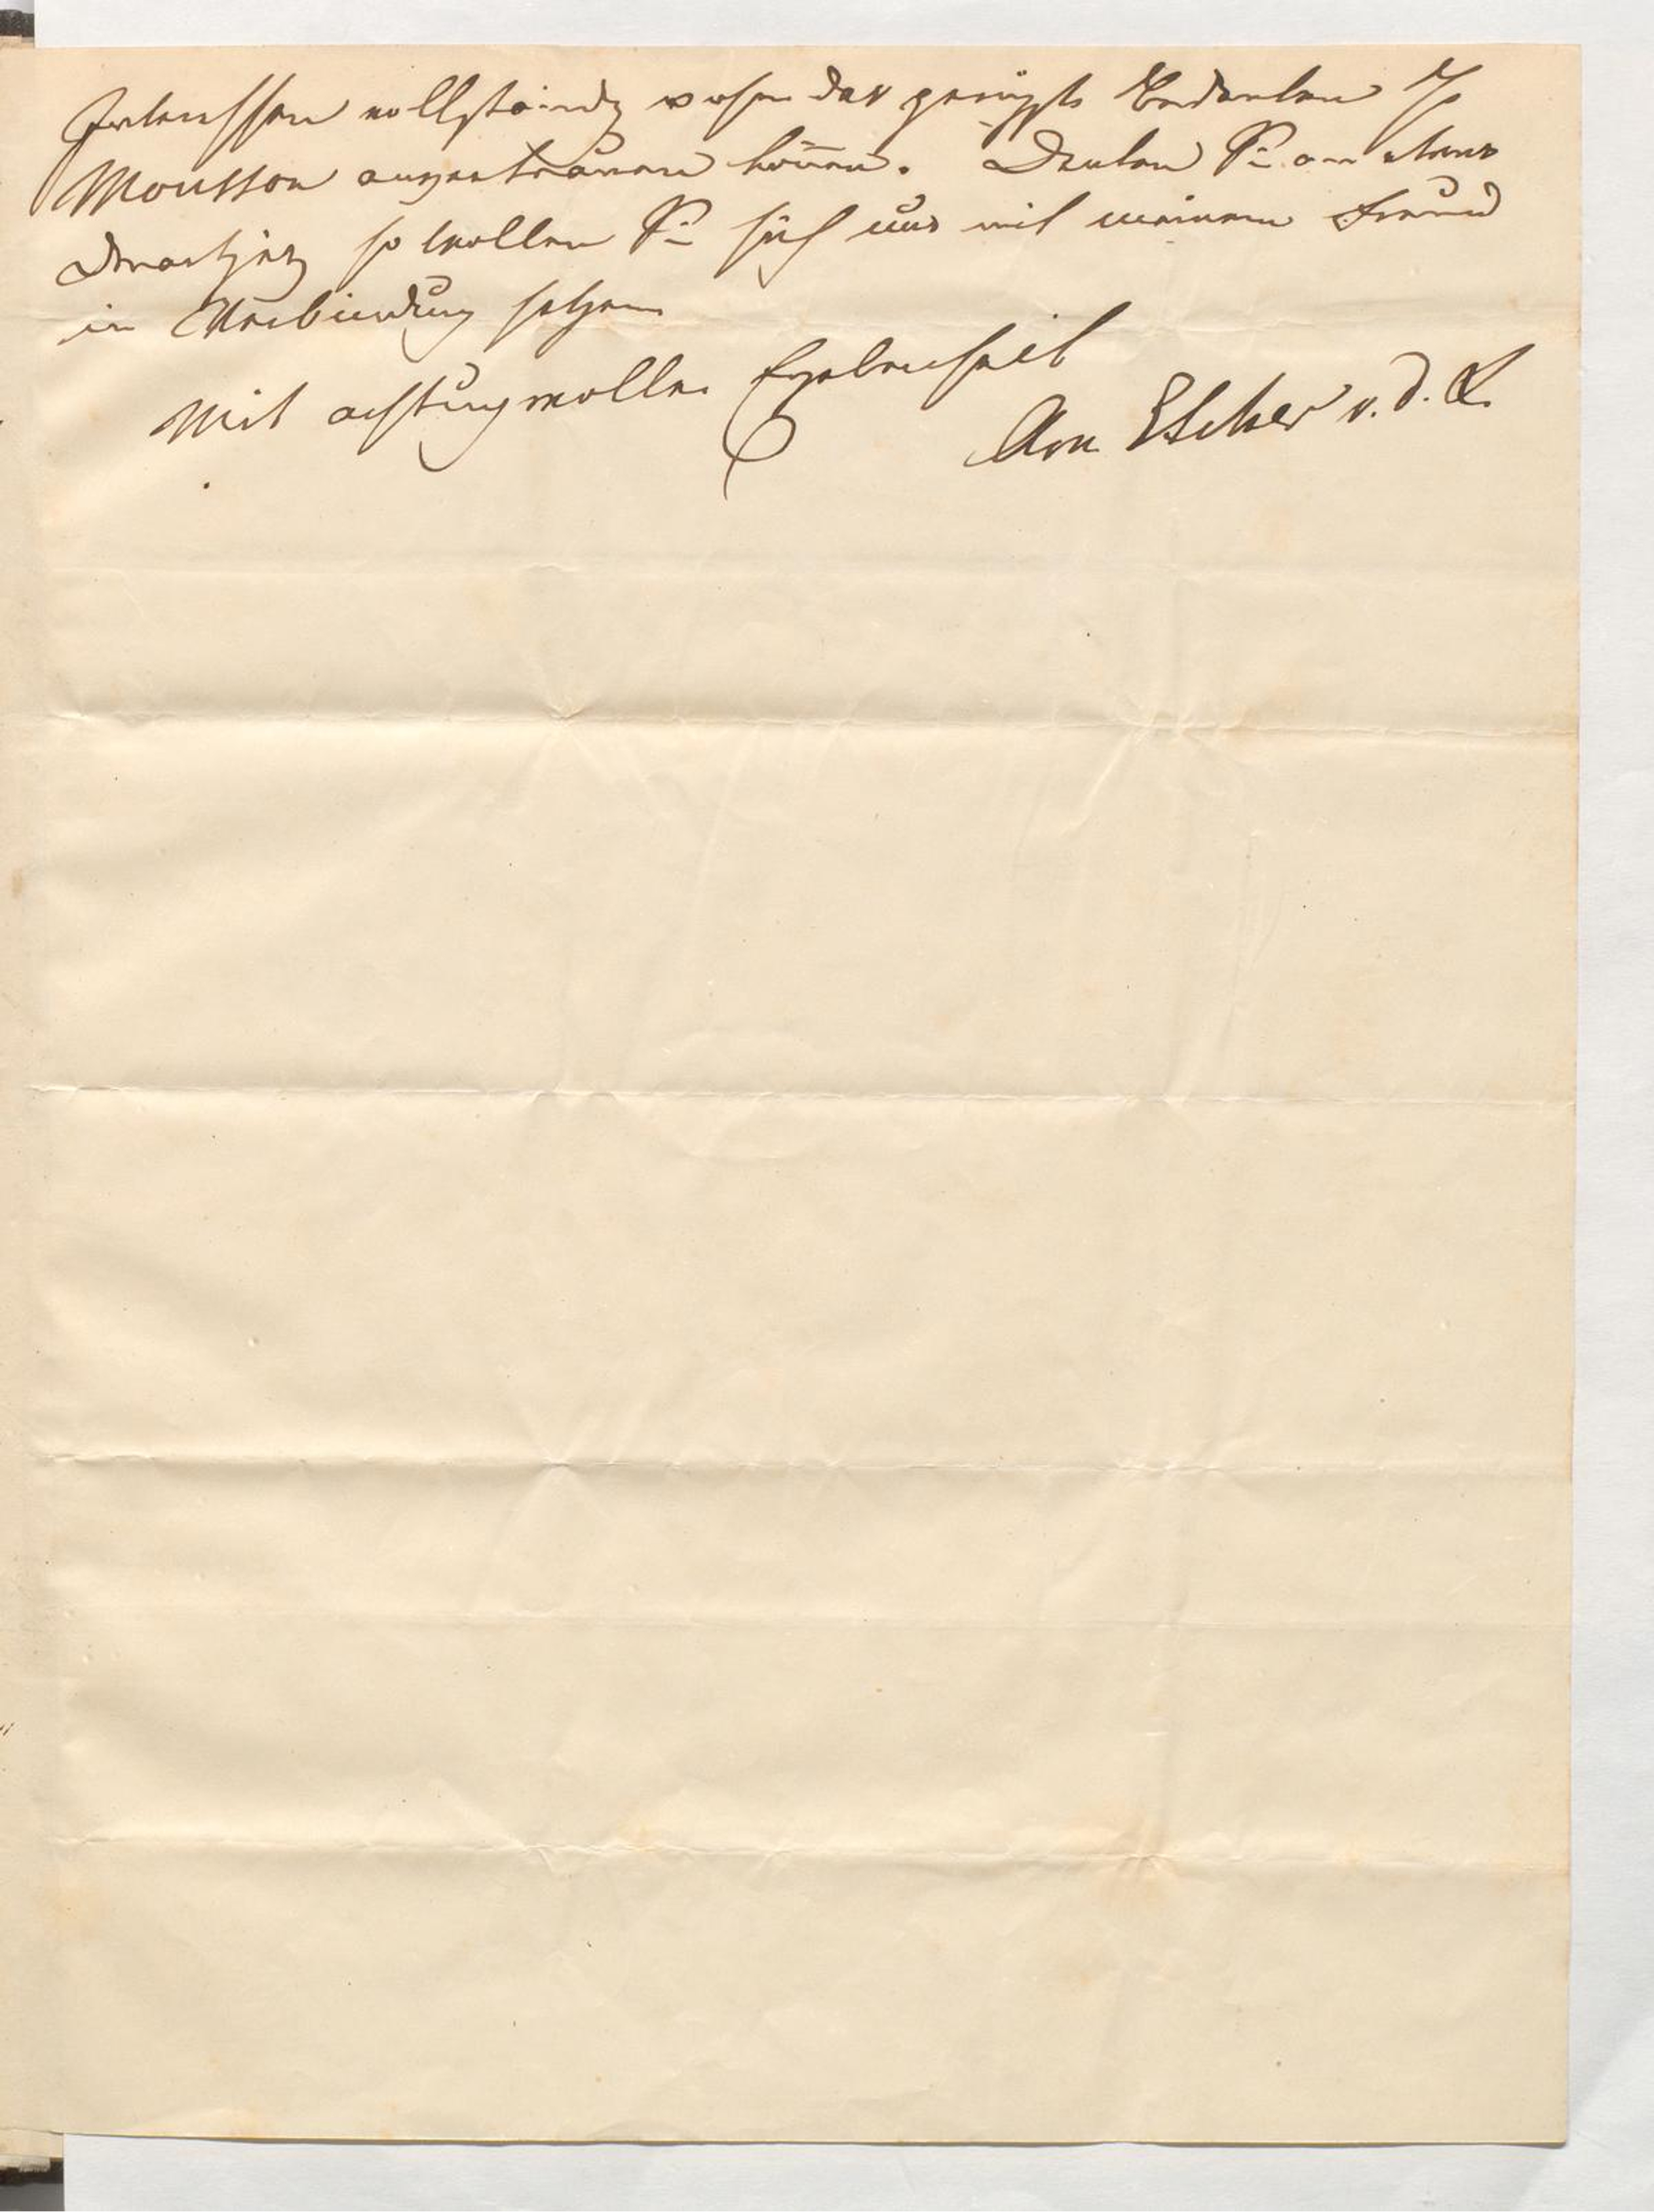 Interessen vollständig ohne das geringste Bedenken Hr
Mousson anvertrauen können. Denken Sie an etwas
derartiges so wollen Sie sich nur mit meinem Freund
in Verbindung setzen
Mit achtungsvoller Ergebenheit
Arn Escher v. d. L.